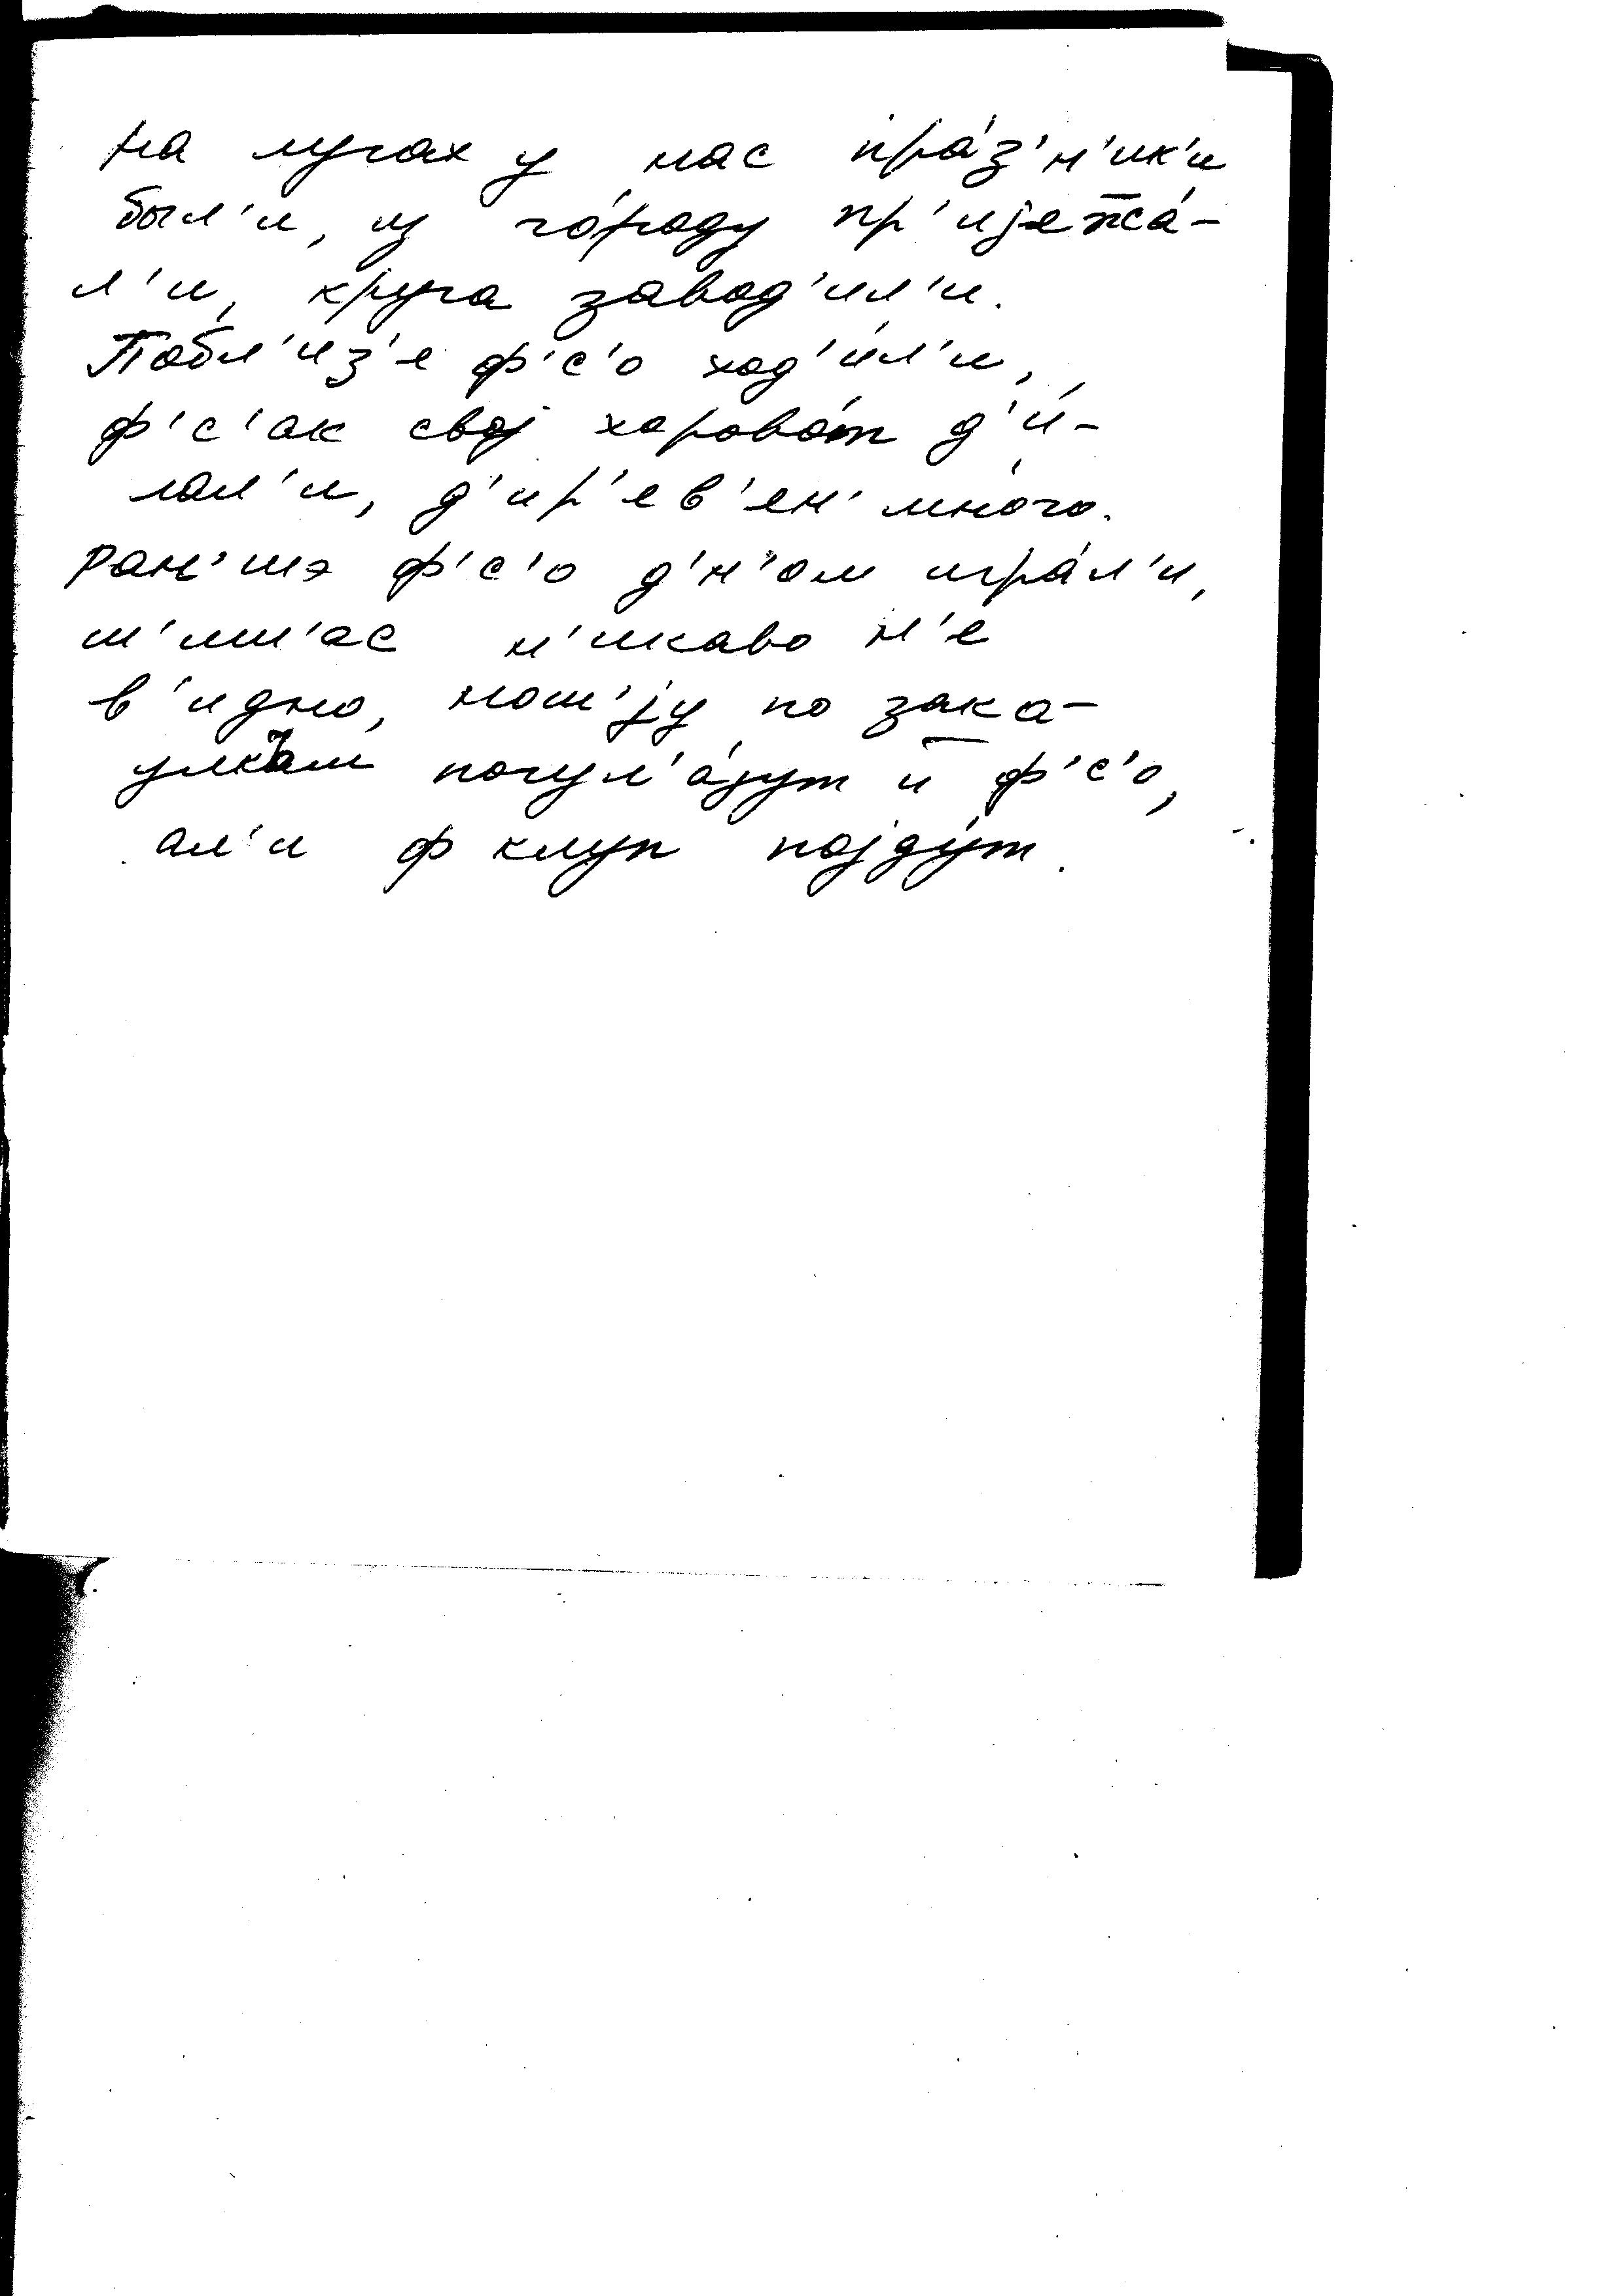 на лугах у нас пра́з'н'ик'и
был'и, из го́роду пр'ијежа́-
л'и, круга завод'ил'и.
Побл'из'е ф'с'о ход'и́л'и,
ф'с'ак свој хорово́т д'и́-
лал'и, д'ир'ев'ен' мно́го.
Ран'шэ ф'с'о д'н'ом игра́л'и,
ш'иш'ас н'икаво н'е
в'идно, нош'јy по зака-
улкам погул'а́јут и ф'с'о,
ал'и ф клуп појду́т.